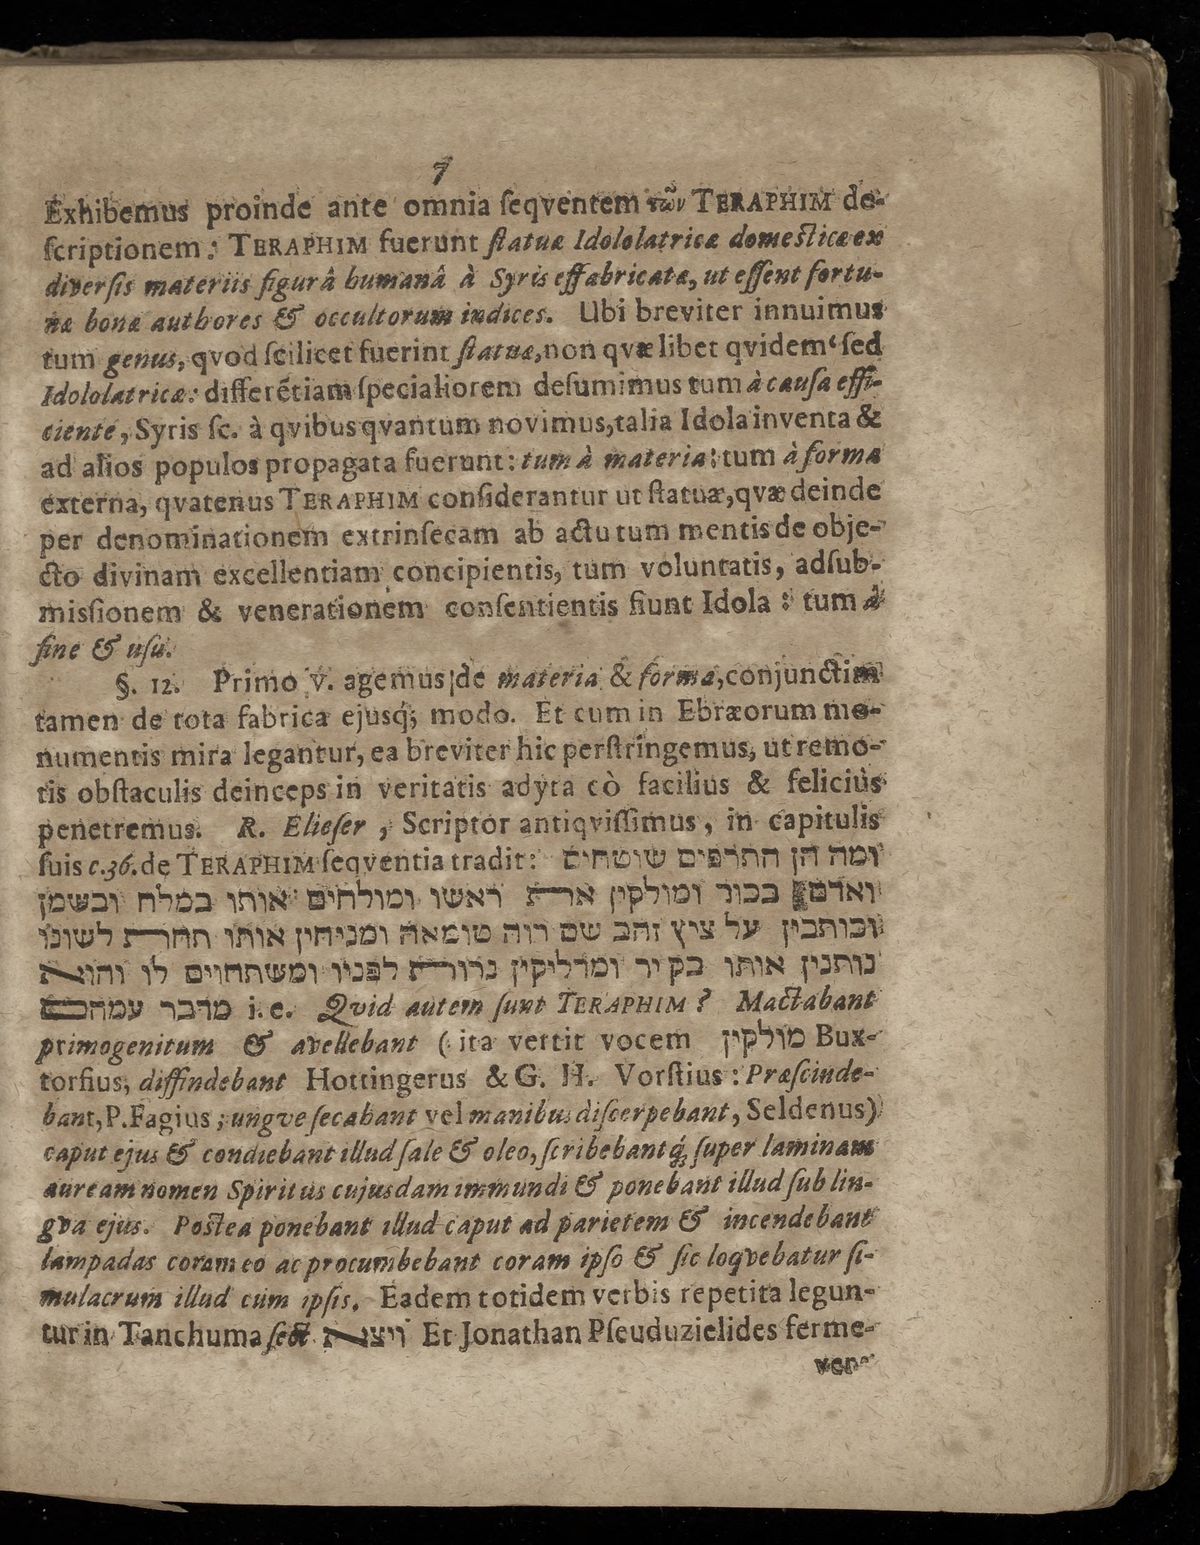 7
Exhibemus proinde ante omnia ſeqventem τῶν TERAPHIM de-
ſcriptionem: TERAPHIM fuerunt ſtatuæ Idololatricæ domeſticæ ex
diverſis materiis figurâ humanâ à Syris effabricatæ, ut eſſent fortu-
næ bonæ authores & occultorum indices. Ubi breviter innuimus
tum genus, qvod ſcilicet fuerint ſtatuæ, non qvælibet qvidem ſed
Idololatricæ: differẽtiam ſpecialiorem deſumimus tum à cauſa effi-
ciente, Syris ſc. à qvibus qvantum novimus, talia Idola inventa &
ad alios populos propagata fuerunt: tum à materia: tum à forma
externa, qvatenus TERAPHIM conſiderantur ut ſtatuæ, qvæ deinde
per denominationem extrinſecam ab actu tum mentis de obje-
cto divinam excellentiam concipientis, tum voluntatis, adſub-
miſsionem & venerationem conſentientis fiunt Idola: tum à
fine & uſu.
§. 12. Primo v. agemus de materia & forma, conjunctim
tamen de tota fabrica ejusq́; modo. Et cum in Ebræorum mo-
numentis mira legantur, ea breviter hic perſtringemus, ut remo-
tis obſtaculis deinceps in veritatis adyta eò facilius & feliciùs
penetremus. R. Elieſer, Scriptor antiqviſſimus, in capitulis
ſuis c. 36. de TERAPHIM ſeqventia tradit: ומה הן התרפים שוטחים
ואדם בכור ומולקין את ראשו ומולחים אותו במלח ובשמן
וכותבין על ציץ זהב שם רוח טומאה ומניחין אותו תחת לשונו
נותנין אותו בקיר ומדליקין נרות לפניו ומשתחוים לו והוא
מדבר עמהם i. e. Qvid autem ſunt TERAPHIM? Mactabant
primogenitum & avellebant (ita vertit vocem מולקין Bux-
torfius, diffindebant Hottingerus & G. H. Vorſtius: Præſcinde-
bant, P. Fagius; ungve ſecabant vel manibus diſcerpebant, Seldenus)
caput ejus & condiebant illud ſale & oleo, ſcribebantq́; ſuper laminam
auream nomen Spiritus cujusdam immundi & ponebant illud ſub lin-
gva ejus. Poſtea ponebant illud caput ad parietem & incendebant
lampadas coram eo ac procumbebant coram ipſo & ſic loqvebatur ſi-
mulacrum illud cum ipſis. Eadem totidem verbis repetita legun-
tur in Tanchuma ſect ויצא Et Jonathan Pſeuduzielides ferme-